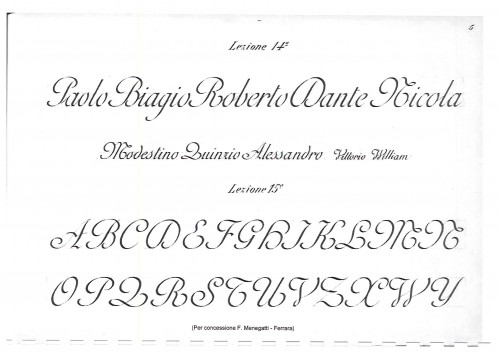 6
Lezione 14ª
Paolo Biagio Roberto Dante Nicola
Modestino Quinzio Alessandro Vittorio William
Lezione 15ª
A B C D E F G H I K L M N
O P Q R S T U V Z X W Y
(Per concessione F. Menegatti - Ferrara)